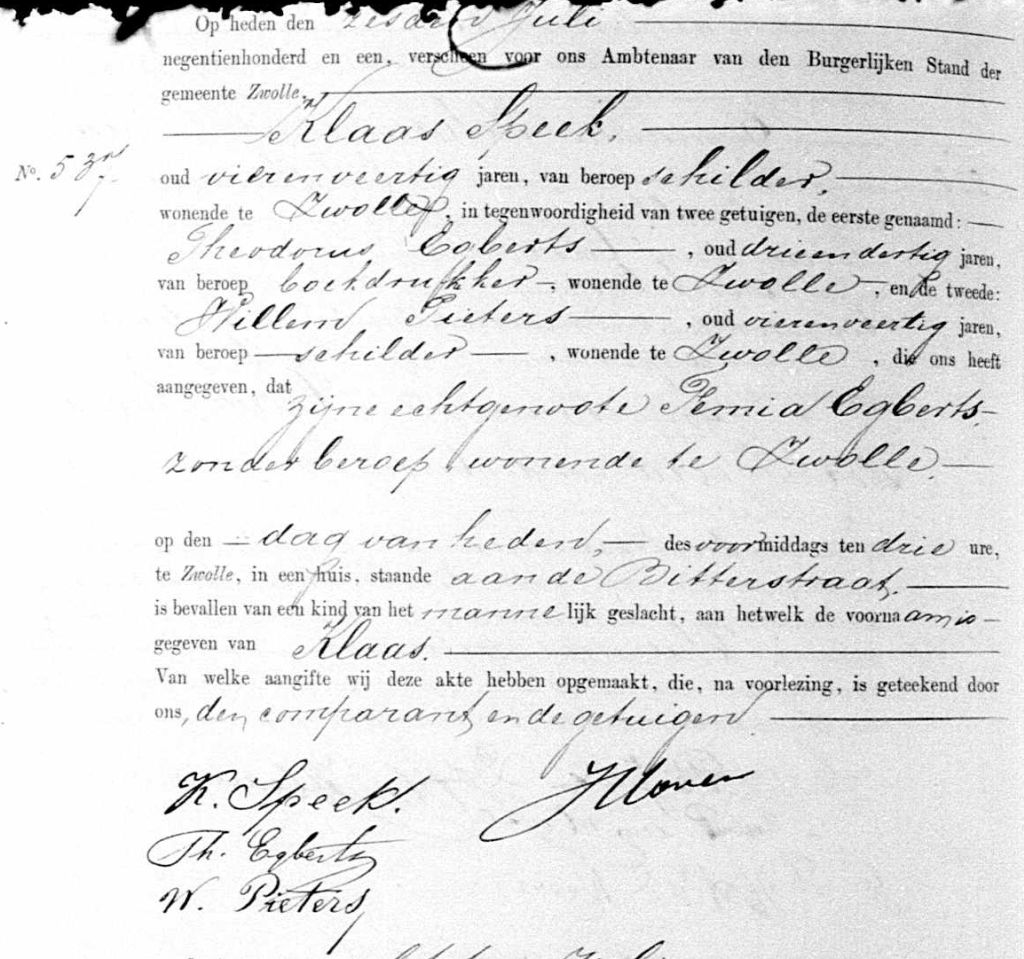 Op heden den zesden Juli
negentienhonderd en een, verscheen voor ons Ambtenaar van den Burgerlijken Stand der
gemeente Zwolle,
Klaas Speek,
No. 537
oud vierenveertig jaren, van beroep schilder,
wonende te Zwolle, in tegenwoordigheid van twee getuigen, de eerste genaamd:
Theodorus Egberts, oud drieendertig jaren,
van beroep boekdrukker, wonende te Zwolle, en de tweede:
Willem Pieters, oud vierenveertig jaren,
van beroep schilder, wonende te Zwolle, die ons heeft
aangegeven, dat
zijne echtgenoote Femia Egberts
zonder beroep, wonende te Zwolle,
op den dag van heden, des voormiddags ten drie ure,
te Zwolle, in een huis, staande aan de Bitterstraat,
is bevallen van een kind van het mannelijk geslacht, aan hetwelk de voornaam is
gegeven van Klaas.
Van welke aangifte wij deze akte hebben opgemaakt, die, na voorlezing, is geteekend door
ons, den comparant en de getuigen
K. Speek.
Th. Egberts
W. Pieters